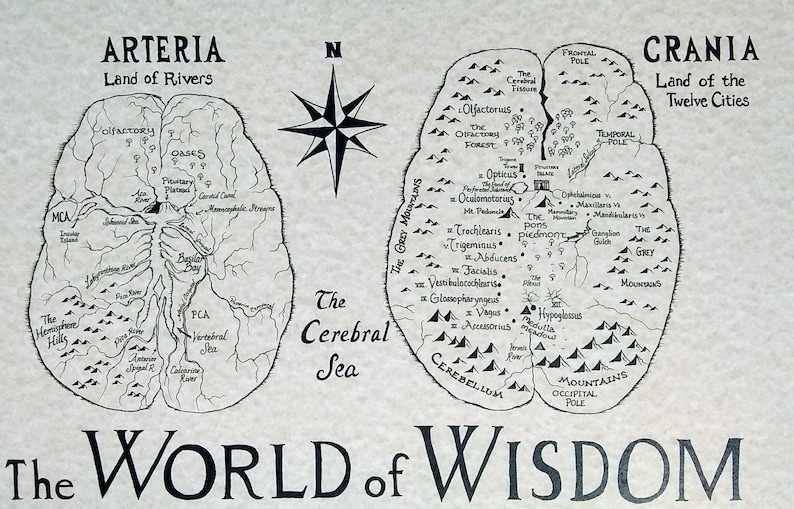 ARTERIA
Land of Rivers
N
CRANIA
Land of the
Twelve Cities
Olfactory
Oases
Pituitary
Plateau
Aca
River
Carotid Canal
Mesencephalic Streams
MCA
Sphenoid Sea
Insular
Island
Labyrinthine River
Basilar
Bay
Pica River
PCA
The
Hemisphere
Hills
Pica River
Vertebral
Sea
Anterior
Spinal R.
Calcarine
River
The
Cerebral
Sea
FRONTAL
POLE
The
Cerebral
Fissure
I. Olfactorius
THE
OLFACTORY
FOREST
TEMPORAL
POLE
Trigone
Tower
PITUITARY
PALACE
II. Opticus
The Pond of
Perforated Substance
III. Oculomotorius
Ophthalmicus V1
Maxillaris V2
Mandibularis V3
Mt. Peduncle
Mammillary
Mountain
THE GREY MOUNTAINS
The
Pons
Piedmont
Ganglion
Gulch
IV. Trochlearis
V. Trigeminus
VI. Abducens
VII. Facialis
VIII. Vestibulocochlearis
IX. Glossopharyngeus
X. Vagus
XI. Accessorius
THE
GREY
MOUNTAINS
The
Plexus
XII
Hypoglossus
Medulla
Meadow
Vermis
River
CEREBELLUM
MOUNTAINS
OCCIPITAL
POLE
The WORLD of WISDOM